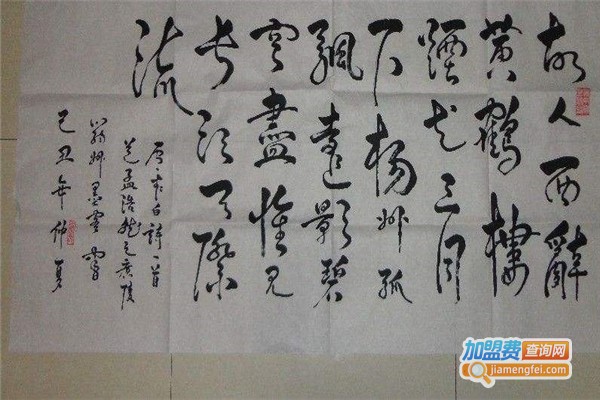 故人西辭
黄鶴樓
煙花三月
下楊州孤
遠影碧
空盡惟見
長江天際
流
唐李白詩一首
送孟浩然之廣陵
州墨
己丑年仲夏
加盟费查询网
jiamengfei.com